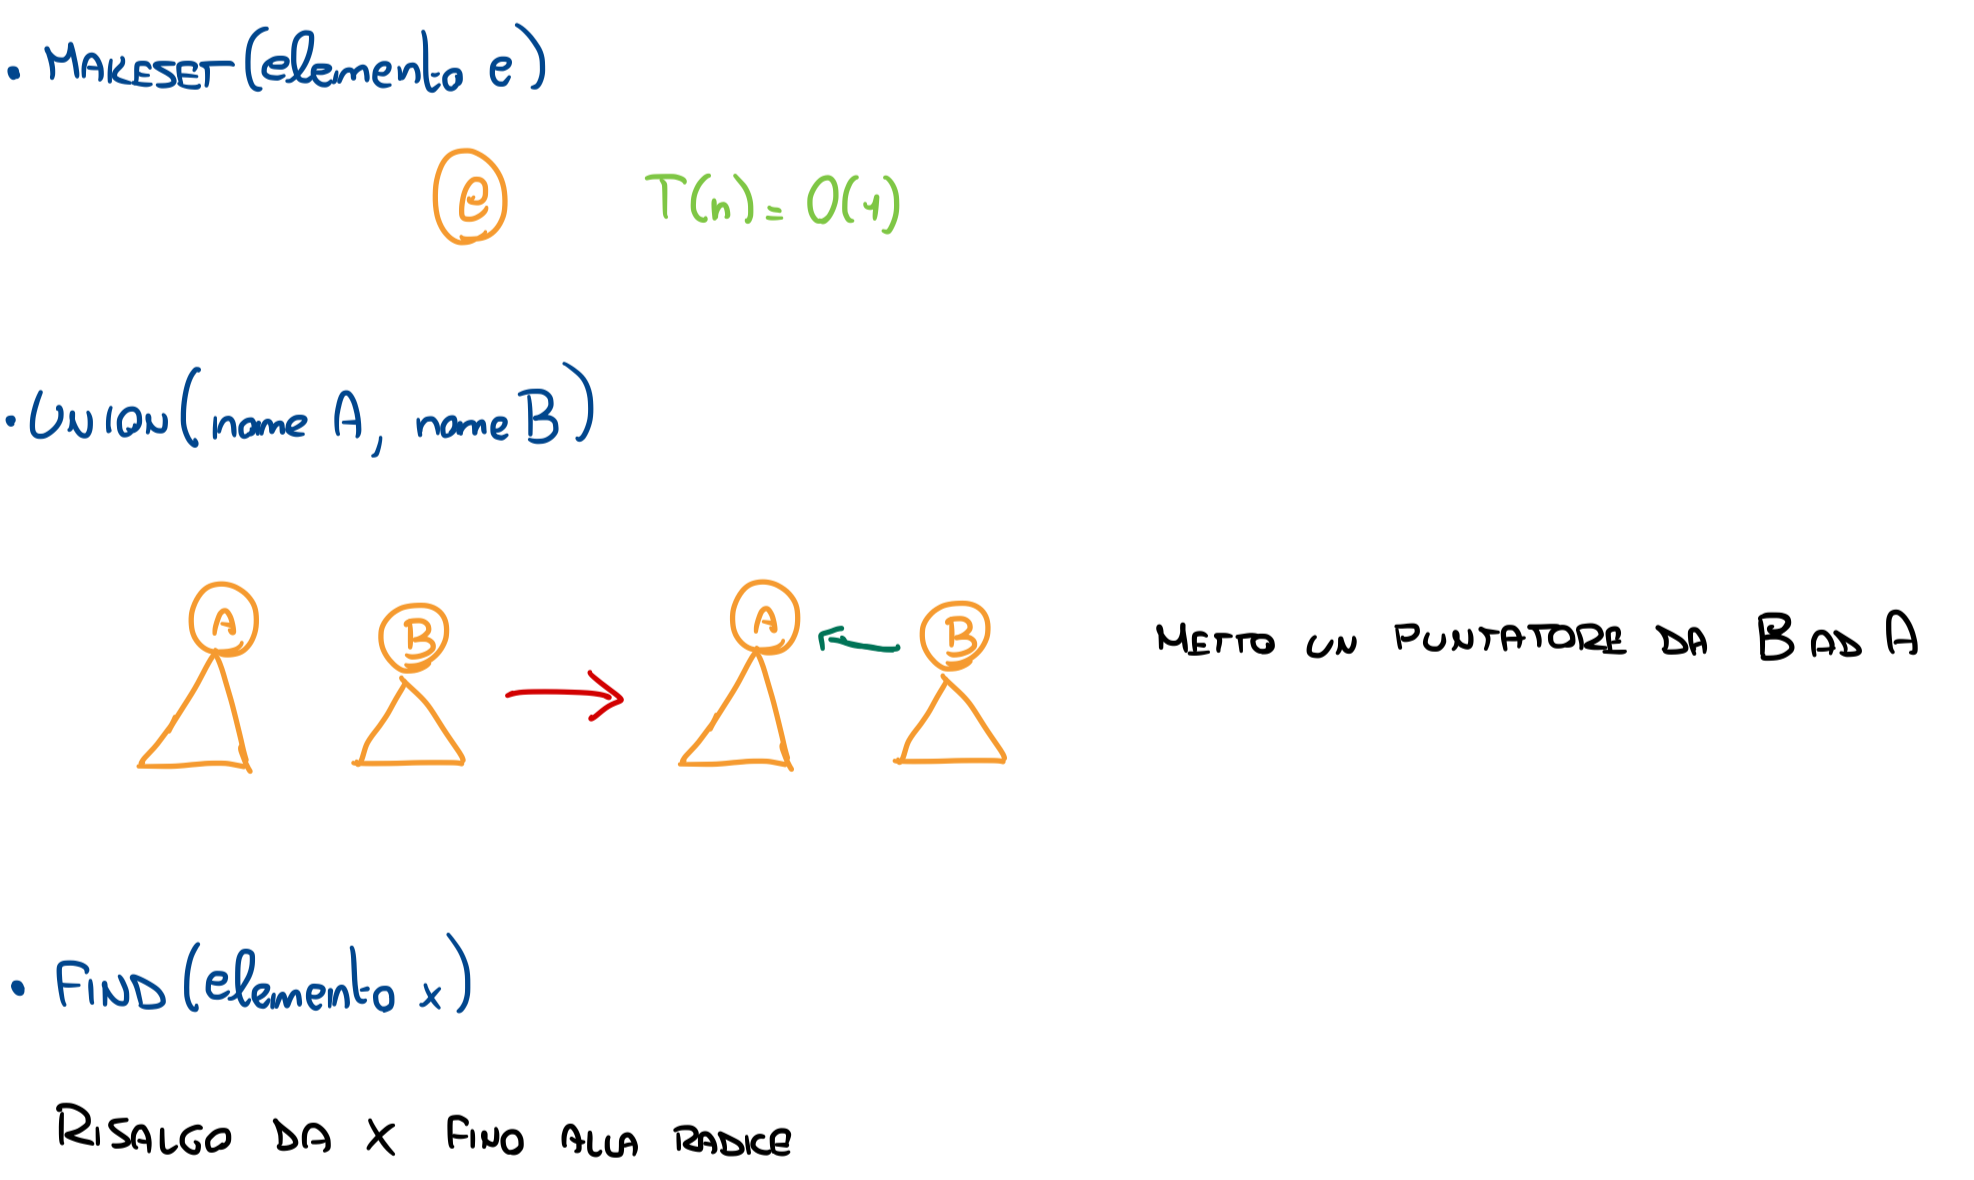 • MAKESET (elemento e)
e T(n) = O(1)
• UNION (name A, name B)
A B A B METTO UN PUNTATORE DA B AD A
• FIND (elemento x)
RISALGO DA X FINO ALLA RADICE